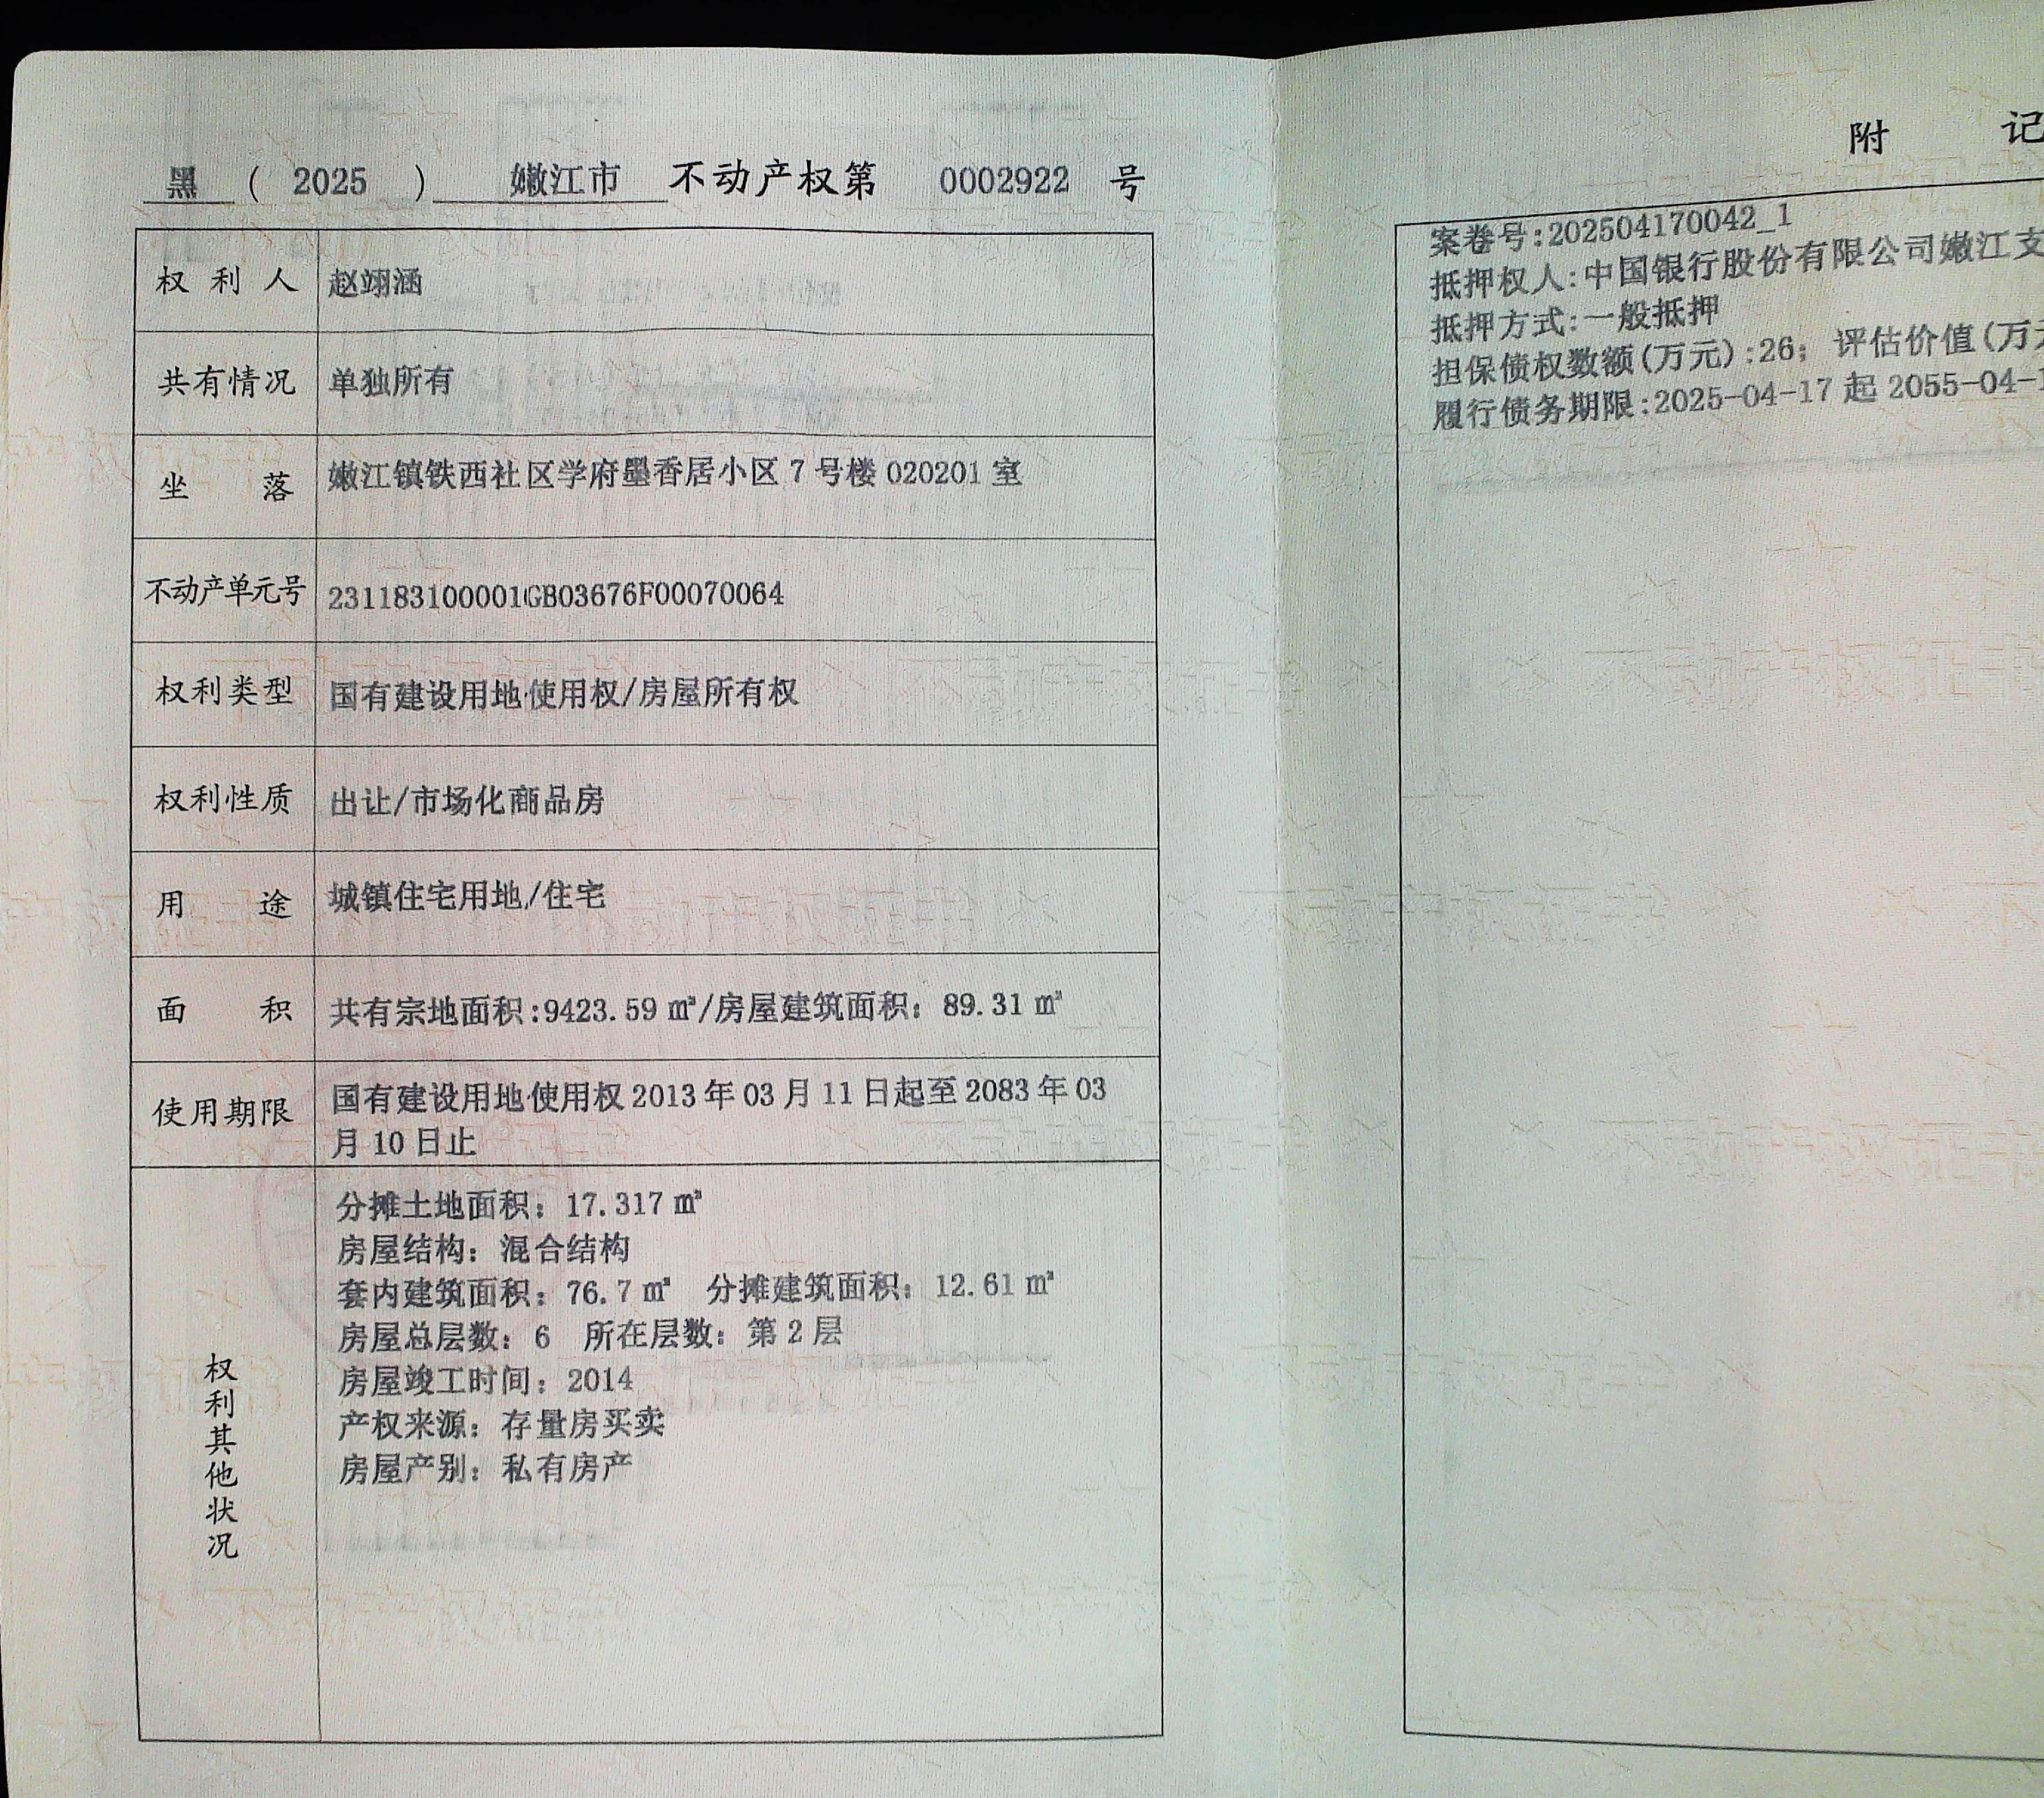 黑 ( 2025 ) 嫩江市 不动产权第 0002922 号
权利人 赵翊涵
共有情况 单独所有
坐落 嫩江镇铁西社区学府墨香居小区 7 号楼 020201 室
不动产单元号 231183100001GB03676F00070064
权利类型 国有建设用地使用权/房屋所有权
权利性质 出让/市场化商品房
用途 城镇住宅用地/住宅
面积 共有宗地面积:9423.59 ㎡/房屋建筑面积: 89.31 ㎡
使用期限 国有建设用地使用权 2013 年 03 月 11 日起至 2083 年 03
月 10 日止
权利其他状况
分摊土地面积: 17.317 ㎡
房屋结构: 混合结构
套内建筑面积: 76.7 ㎡ 分摊建筑面积: 12.61 ㎡
房屋总层数: 6 所在层数: 第 2 层
房屋竣工时间: 2014
产权来源: 存量房买卖
房屋产别: 私有房产
附 记
案卷号:202504170042_1
抵押权人:中国银行股份有限公司嫩江支
抵押方式:一般抵押
担保债权数额(万元):26; 评估价值(万
履行债务期限:2025-04-17 起 2055-04-